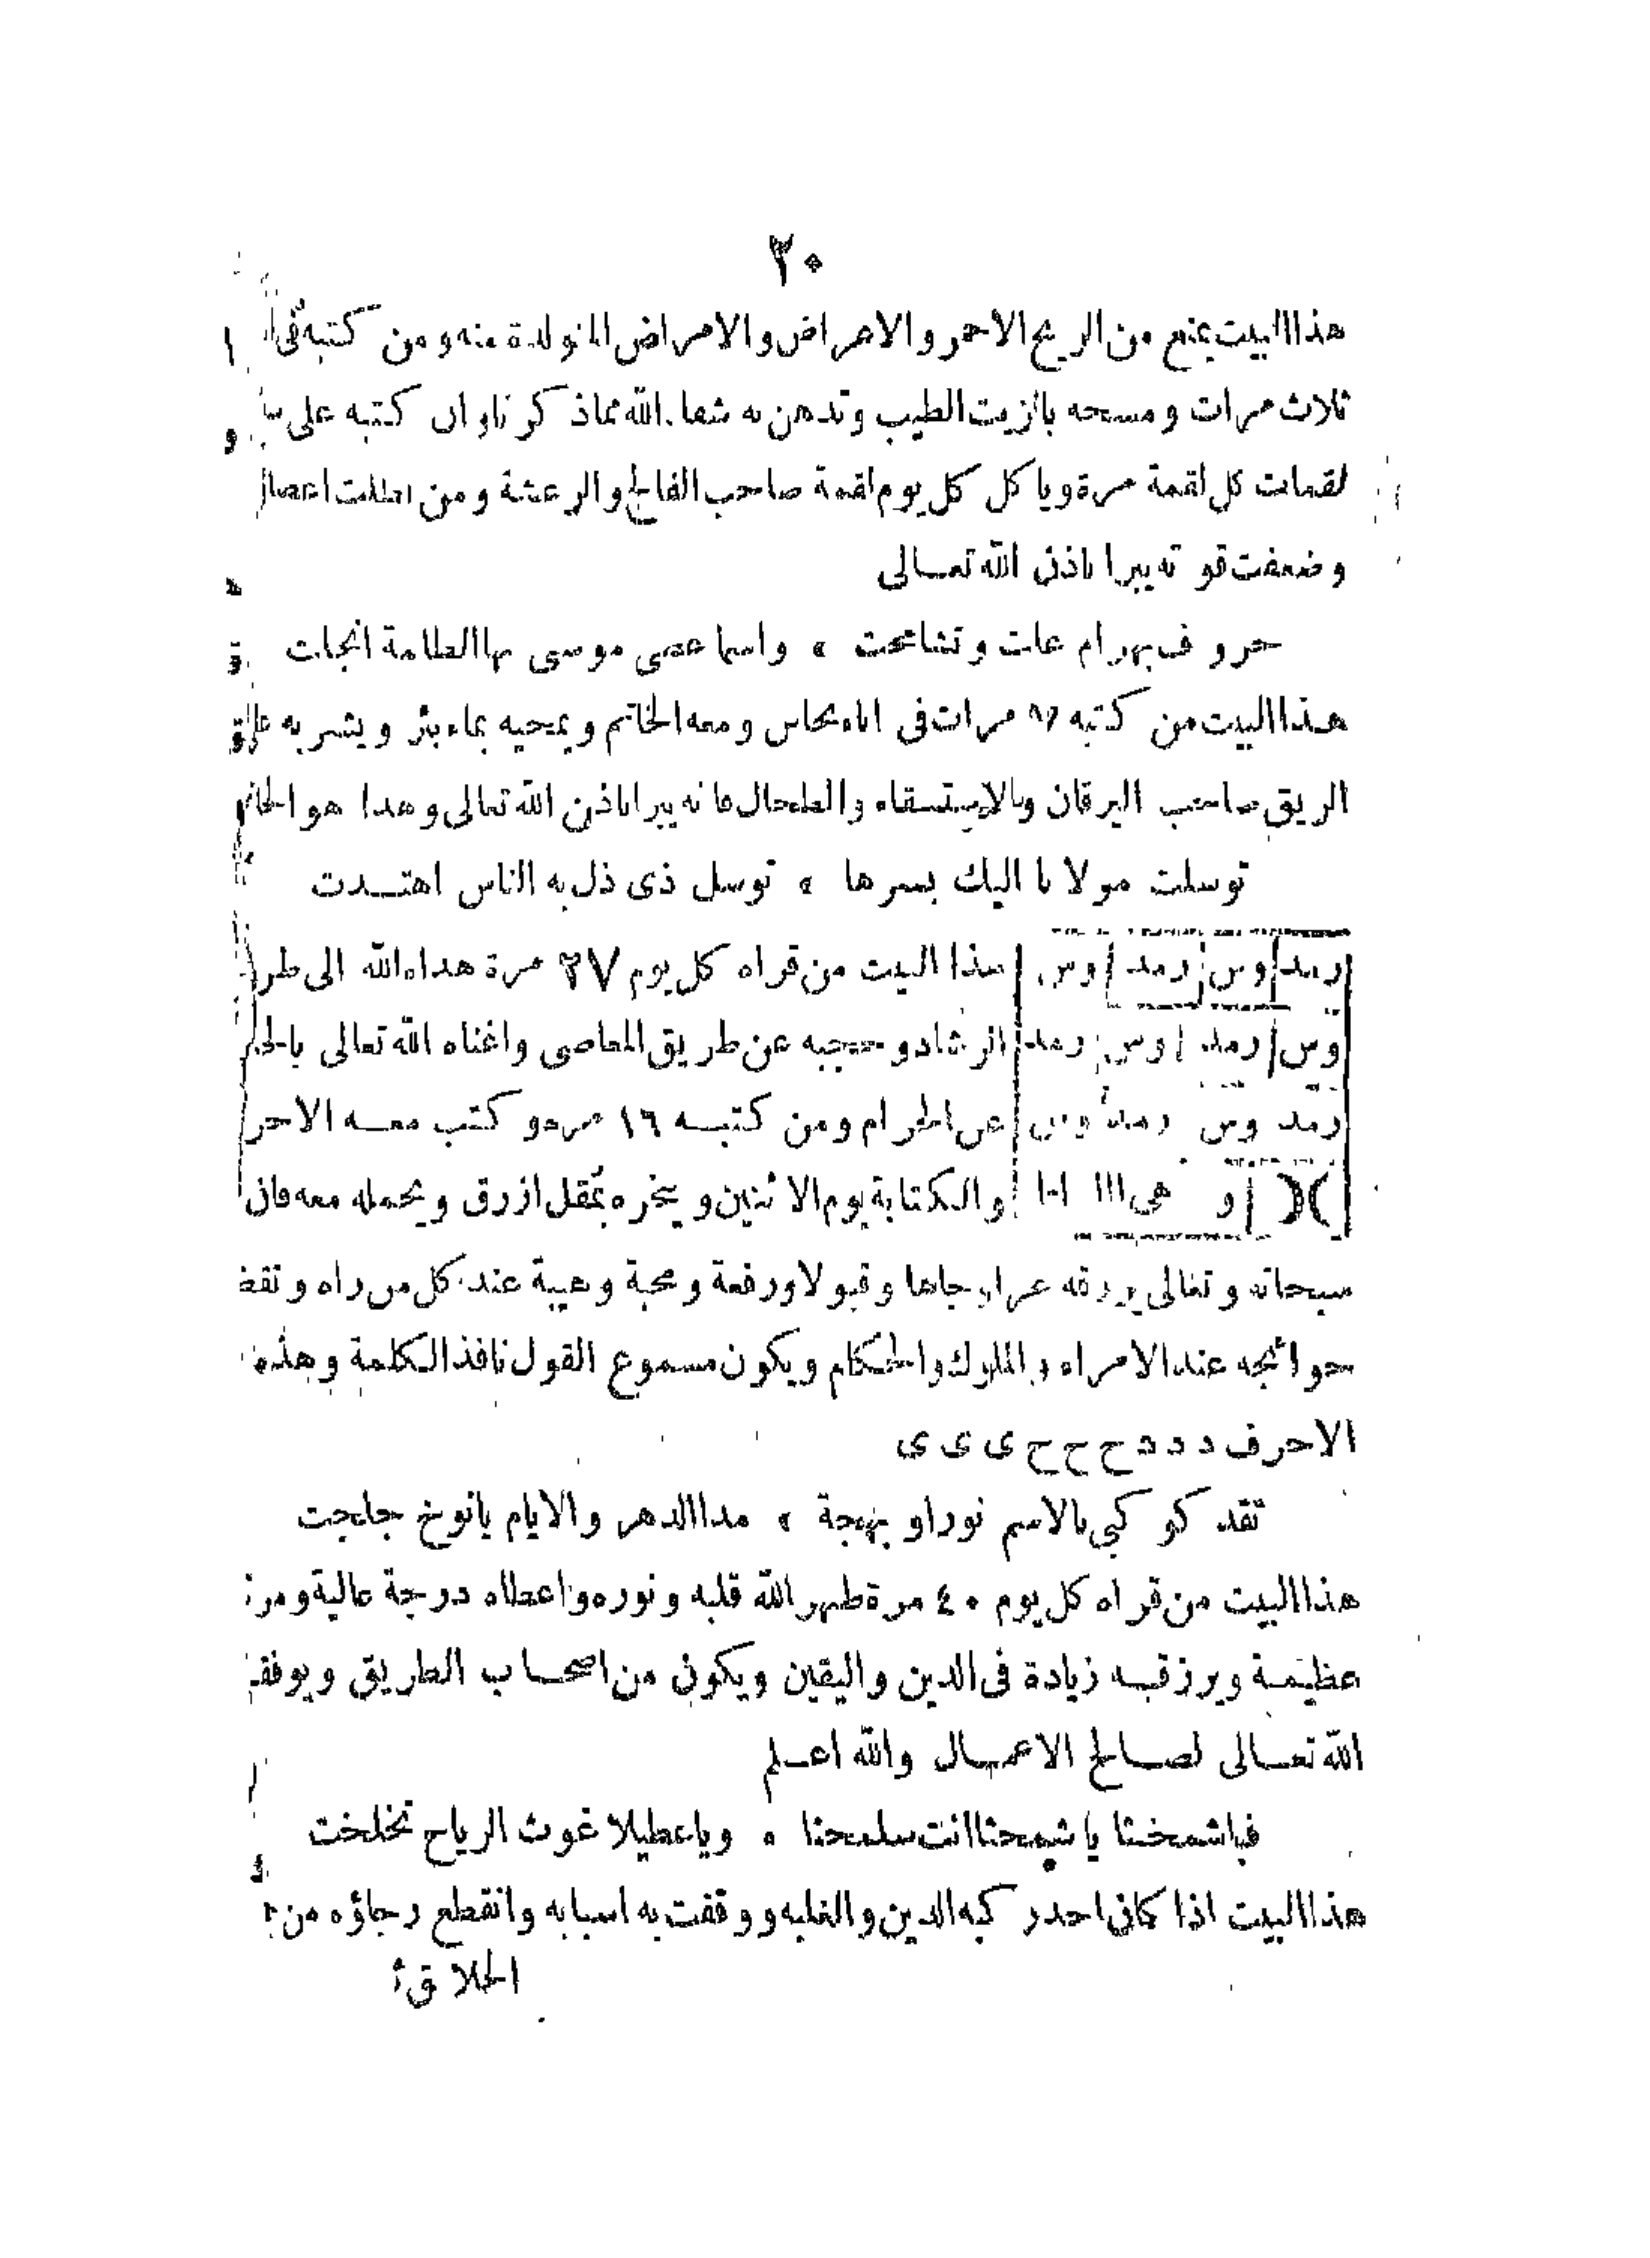 ٣٠
هذا البيت يمنع من الريح الاحمر والاعراض والامراض المتولدة منه ومن كتبه فى
ثلاث مرات ومسحه بالزيت الطيب وتدهن به شفاه الله مماذ كرناوان كتبه على
لقمات كل لقمة مرة وياكل كل يوم لقمة صاحب الفالج والرعشة ومن ابطلت اعضا
وضعفت قوته يبرا باذن الله تعالى
حروف بهرام علت وتشامخت ، واسما عصى موسى بها الظلمة انجلت
هذا البيت من كتبه مرات فى اناء نحاس ومعه الخاتم ويمحيه بماء بئر ويشربه على
الريق صاحب اليرقان والاستسقاء والطحال فانه يبرا باذن الله تعالى وهذا هو الخاتم
توسلت مولانا اليك بسرها ، توسل ذى ذل به الناس اهتدت
رمد وس رمد وس هذا البيت من قراه كل يوم ٢٧ مرة هداه الله الى طر
وس رمد وس رمد الرشاد وحجبه عن طريق المعاصى واغناه الله تعالى بالحلا
رمد وس رمد وس عن الحرام ومن كتبه ١٦ مره وكتب معه الاحر
)( و هى ااا ااا والكتابة يوم الاثنين ويبخره بمقل ازرق ويحمله معه فان
سبحانه وتعالى يرزقه عزاو جاها وقبولا ورفعة ومحبة وهيبة عند كل من راه وتقض
حوائجه عند الامراء والملوك والحكام ويكون مسموع القول نافذ الكلمة وهذه
الاحرف د د د ح ح ح ى ى ى
تقد كوكبى بالاسم نورا وبهجة ، مدا الدهر والايام يانوخ جلجلت
هذا البيت من قراه كل يوم ٤٠ مرة طهر الله قلبه ونوره واعطاه درجة عالية ومر
عظيمة ويرزقه زيادة فى الدين واليقين ويكون من اصحاب الطريق ويوفقه
الله تعالى لصالح الاعمال والله اعلم
فياشمخثا يا شمخثا انت سلمخثا ، وياعطيلا غوث الرياح تخلخت
هذا البيت اذا كان احد ركبه الدين والغلبه ووقفت به اسبابه وانقطع رجاؤه من
الخلائق